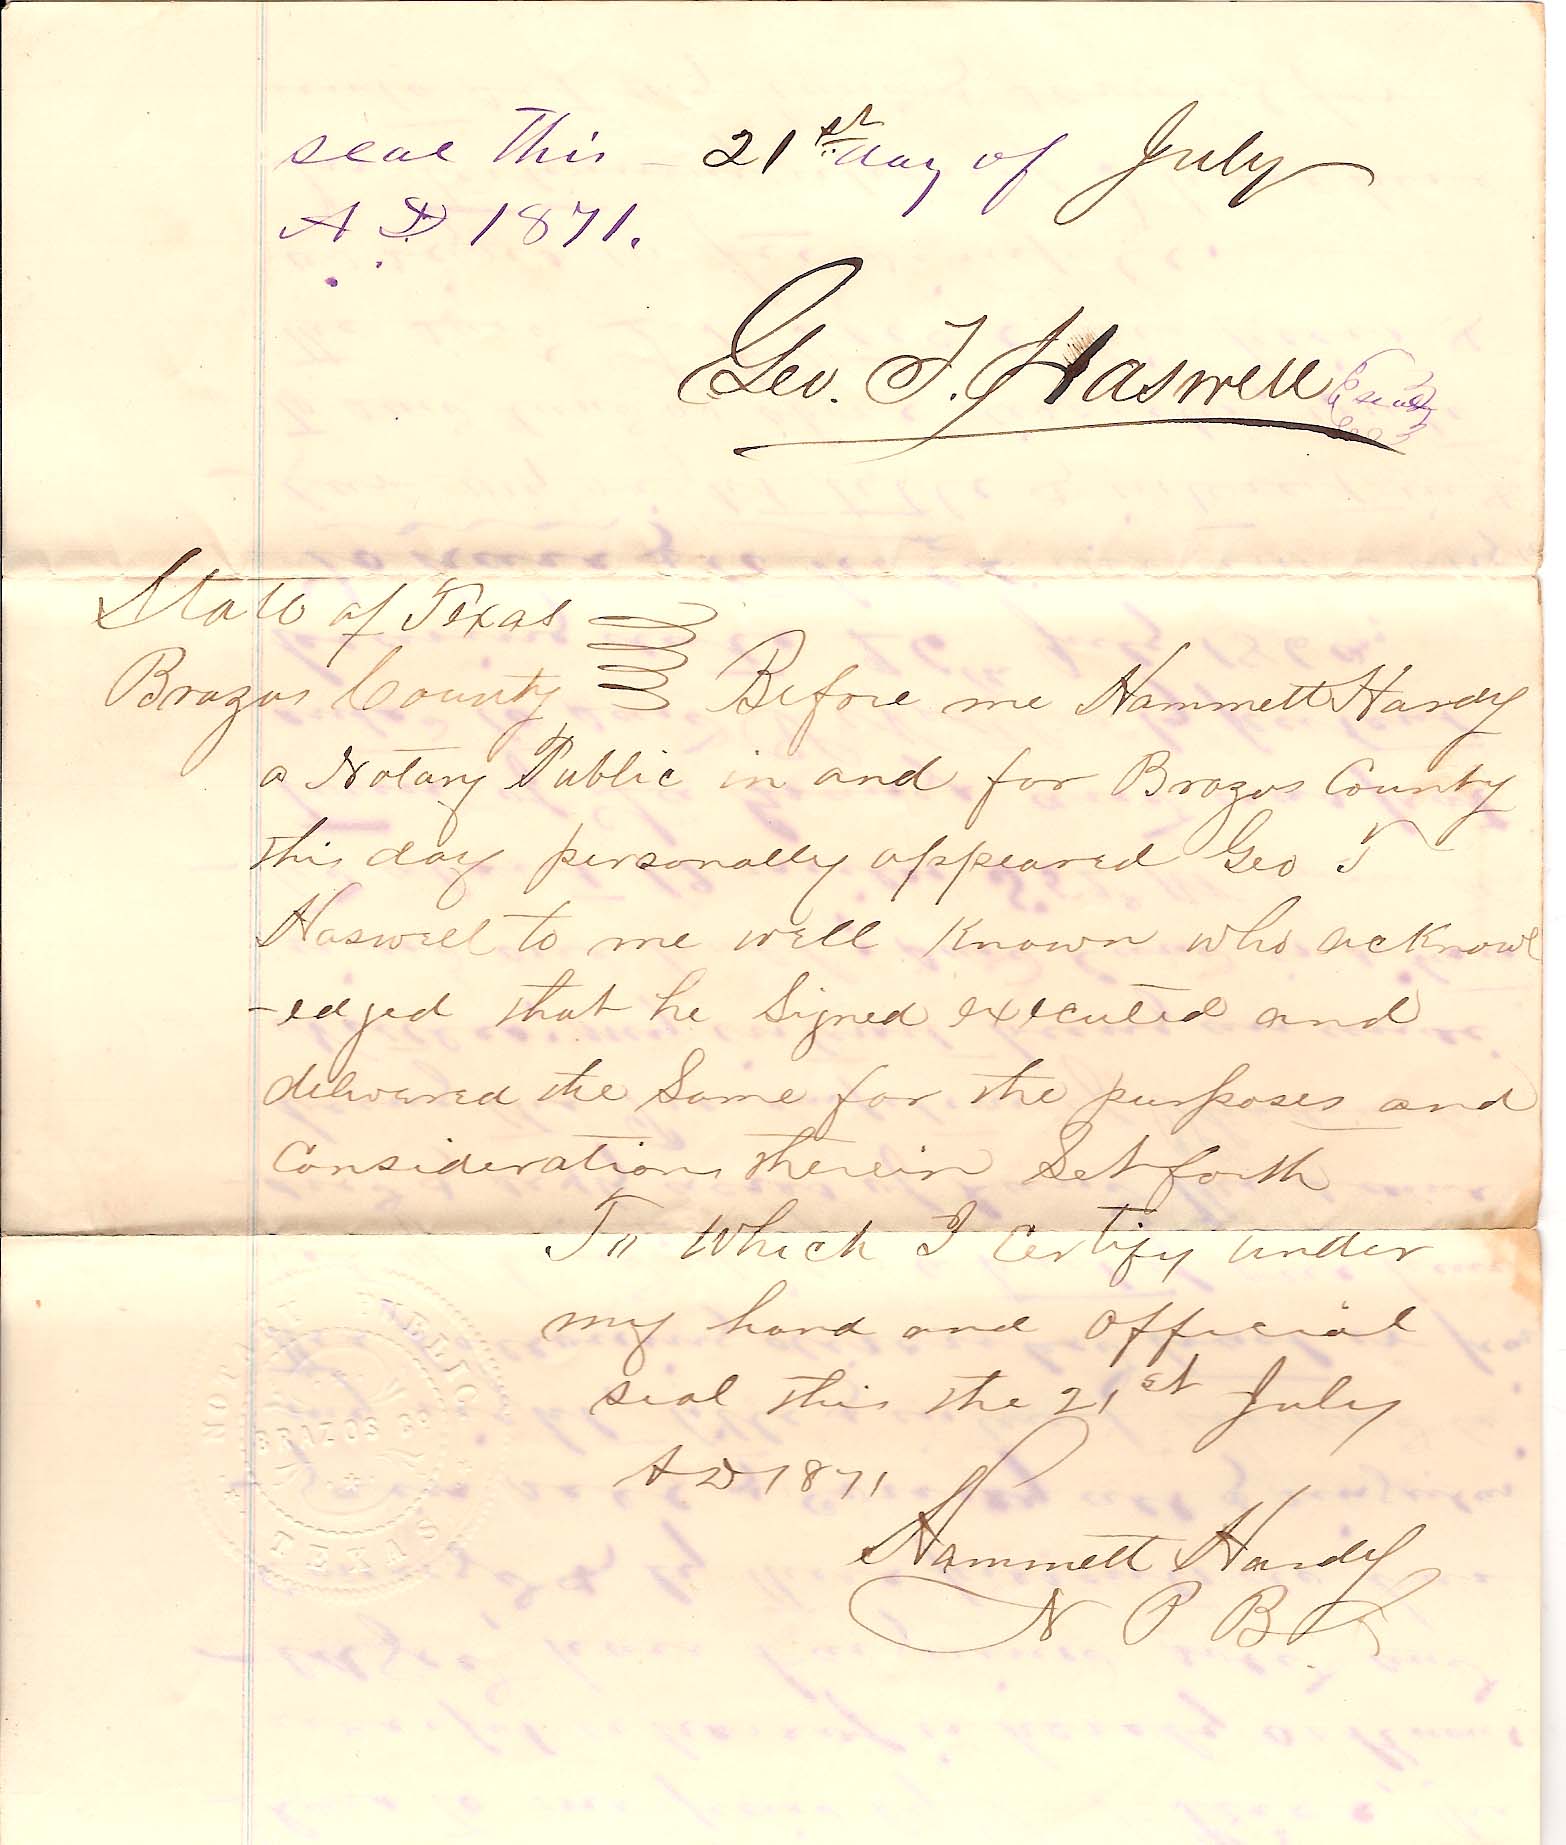 seal this 21st day of July
A D 1871.
Geo. T. Haswell
seal
State of Texas
Brazos County Before me Hammett Hardy
a Notary Public in and for Brazos County
this day personally appeared Geo T
Haswell to me well Known who acknowl
-edged that he Signed executed and
delivered the Same for the purposes and
Considerations therein Set forth
To Which I Certify under
my hand and official
seal this the 21st July
A D 1871
Hammett Hardy
N P B
NOTARY PUBLIC
BRAZOS CO
TEXAS